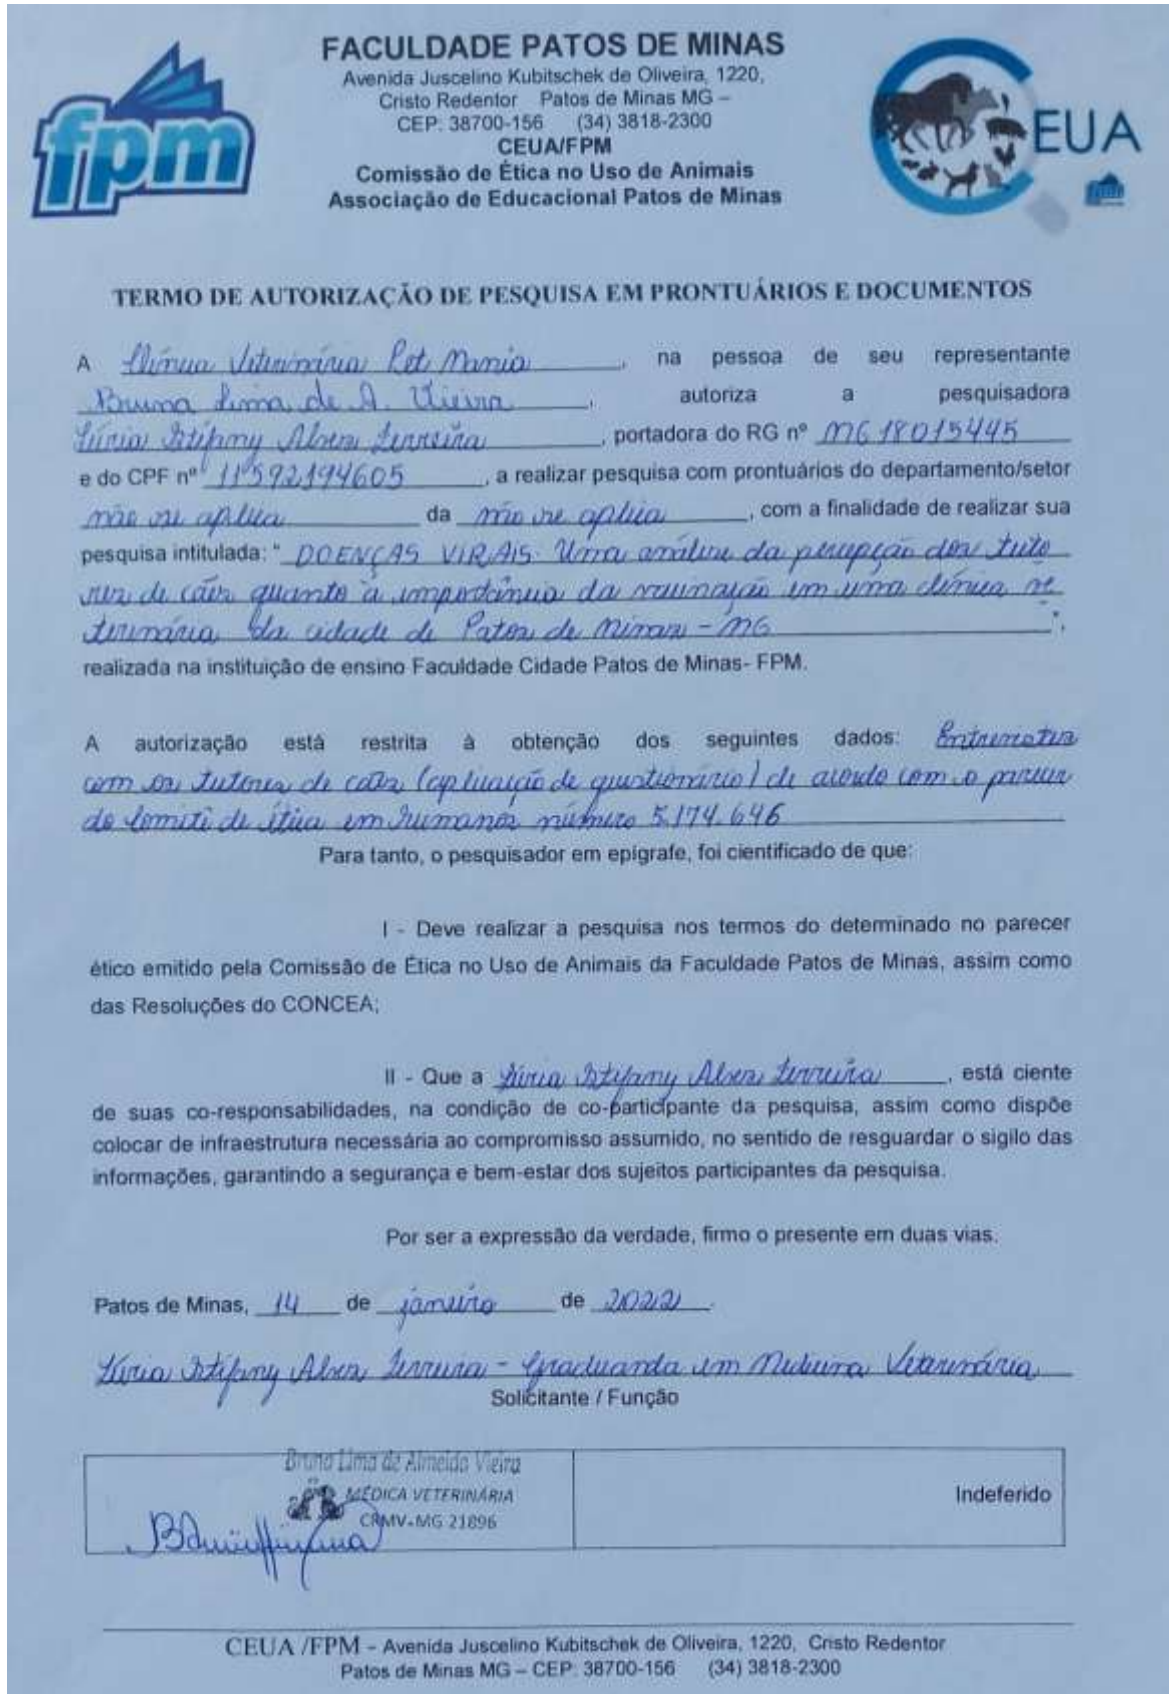 FACULDADE PATOS DE MINAS
Avenida Juscelino Kubitschek de Oliveira, 1220,
Cristo Redentor Patos de Minas MG –
CEP: 38700-156 (34) 3818-2300
CEUA/FPM
Comissão de Ética no Uso de Animais
Associação de Educacional Patos de Minas
fpm
CEUA
TERMO DE AUTORIZAÇÃO DE PESQUISA EM PRONTUÁRIOS E DOCUMENTOS
A Clínica Veterinária Pet Mania, na pessoa de seu representante
Bruna Lima de A. Vieira, autoriza a pesquisadora
Stefany Alves Ferreira, portadora do RG nº MG 18015445
e do CPF nº 11592194605, a realizar pesquisa com prontuários do departamento/setor
não se aplica da não se aplica, com a finalidade de realizar sua
pesquisa intitulada: " DOENÇAS VIRAIS: Uma análise da percepção dos tuto
res de cães quanto à importância da vacinação em uma clínica ve
terinária da cidade de Patos de Minas - MG ",
realizada na instituição de ensino Faculdade Cidade Patos de Minas- FPM.
A autorização está restrita à obtenção dos seguintes dados: Entrevistas
com os tutores de cães (aplicação de questionário) de acordo com o parecer
do Comitê de ética em humanos número 5.174.646
Para tanto, o pesquisador em epígrafe, foi cientificado de que:
I - Deve realizar a pesquisa nos termos do determinado no parecer
ético emitido pela Comissão de Ética no Uso de Animais da Faculdade Patos de Minas, assim como
das Resoluções do CONCEA;
II - Que a Alves Ferreira, está ciente
de suas co-responsabilidades, na condição de co-participante da pesquisa, assim como dispõe
colocar de infraestrutura necessária ao compromisso assumido, no sentido de resguardar o sigilo das
informações, garantindo a segurança e bem-estar dos sujeitos participantes da pesquisa.
Por ser a expressão da verdade, firmo o presente em duas vias.
Patos de Minas, 14 de janeiro de 2022.
Alves Ferreira - Graduanda em Medicina Veterinária
Solicitante / Função
Bruna Lima de Almeida Vieira
MÉDICA VETERINÁRIA
CRMV-MG 21896
Indeferido
CEUA /FPM – Avenida Juscelino Kubitschek de Oliveira, 1220, Cristo Redentor
Patos de Minas MG – CEP: 38700-156 (34) 3818-2300